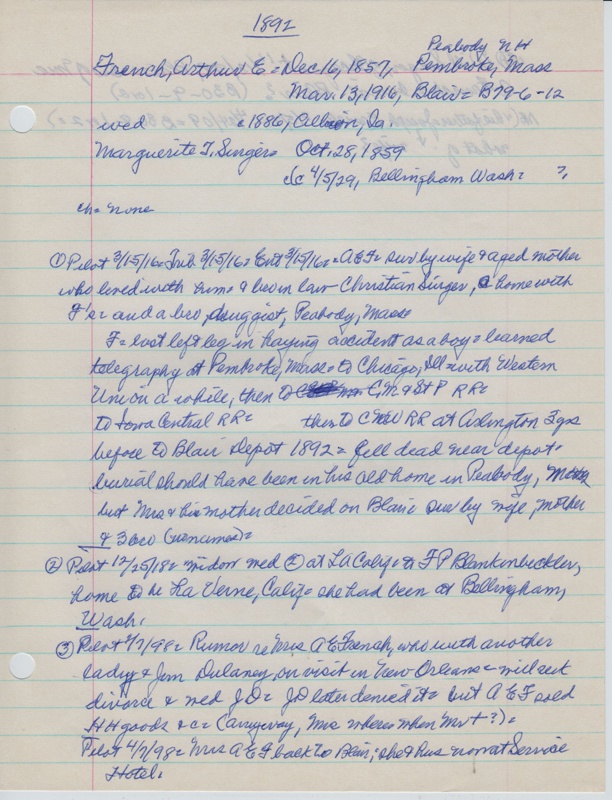 1892
Peabody NH
French, Arthur E = Dec 16, 1857, Pembroke, Mass
Mar. 13, 1916, Blair = B79-6-12
wed = 1886, Albion, Ia
Marguerite T. Singer = Oct. 28, 1859
4/5/29, Bellingham Wash = ?
ch = none
① Pilot 3/15/16 = Trib 3/15/16 = Ent 3/15/16 = A E F = sur by wife & aged mother
who lived with them & bro in law Christian Singer, a home with
F's and a bro, druggist, Peabody, Mass
F = lost left leg in haying accident as a boy = learned
telegraphy at Pembroke, Mass = to Chicago, Ill = with Western
Union a while, then to C, M & St P RR =
to Iowa Central RR = then to C NW RR at Arlington 3 yrs
before to Blair Depot 1892 = fell dead near depot =
burial should have been in his old home in Peabody, Mass
but Mrs & his mother decided on Blair = sur by wife, mother
& 3 bro (usnames) =
② Pilot 12/25/18 = widow wed ② at La Calif = to F P Blankenbeckler,
home to be La Verne, Calif = she had been at Bellingham,
Wash.
③ Pilot /7/98 = Rumor re Mrs A E French, who with another
lady & Jim Dulaney, on visit in New Orleans = will seek
divorce & wed J D = J D later denied it = but A E F sold
H H goods & c = Carryway, Mrs where when Mr + ?) =
Pilot 4/7/98 = Mrs A E F back to Blair; she & Hus now at Service
Hotel =